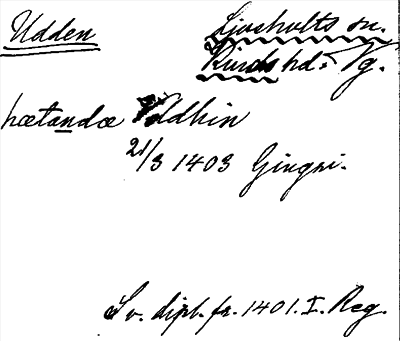 Udden
Ljushults sn.
Kinds hd. Vg.
hætandæ Oddhin
21/3 1403 Gingri.
Sv. dipl. fr. 1401. I. Reg.